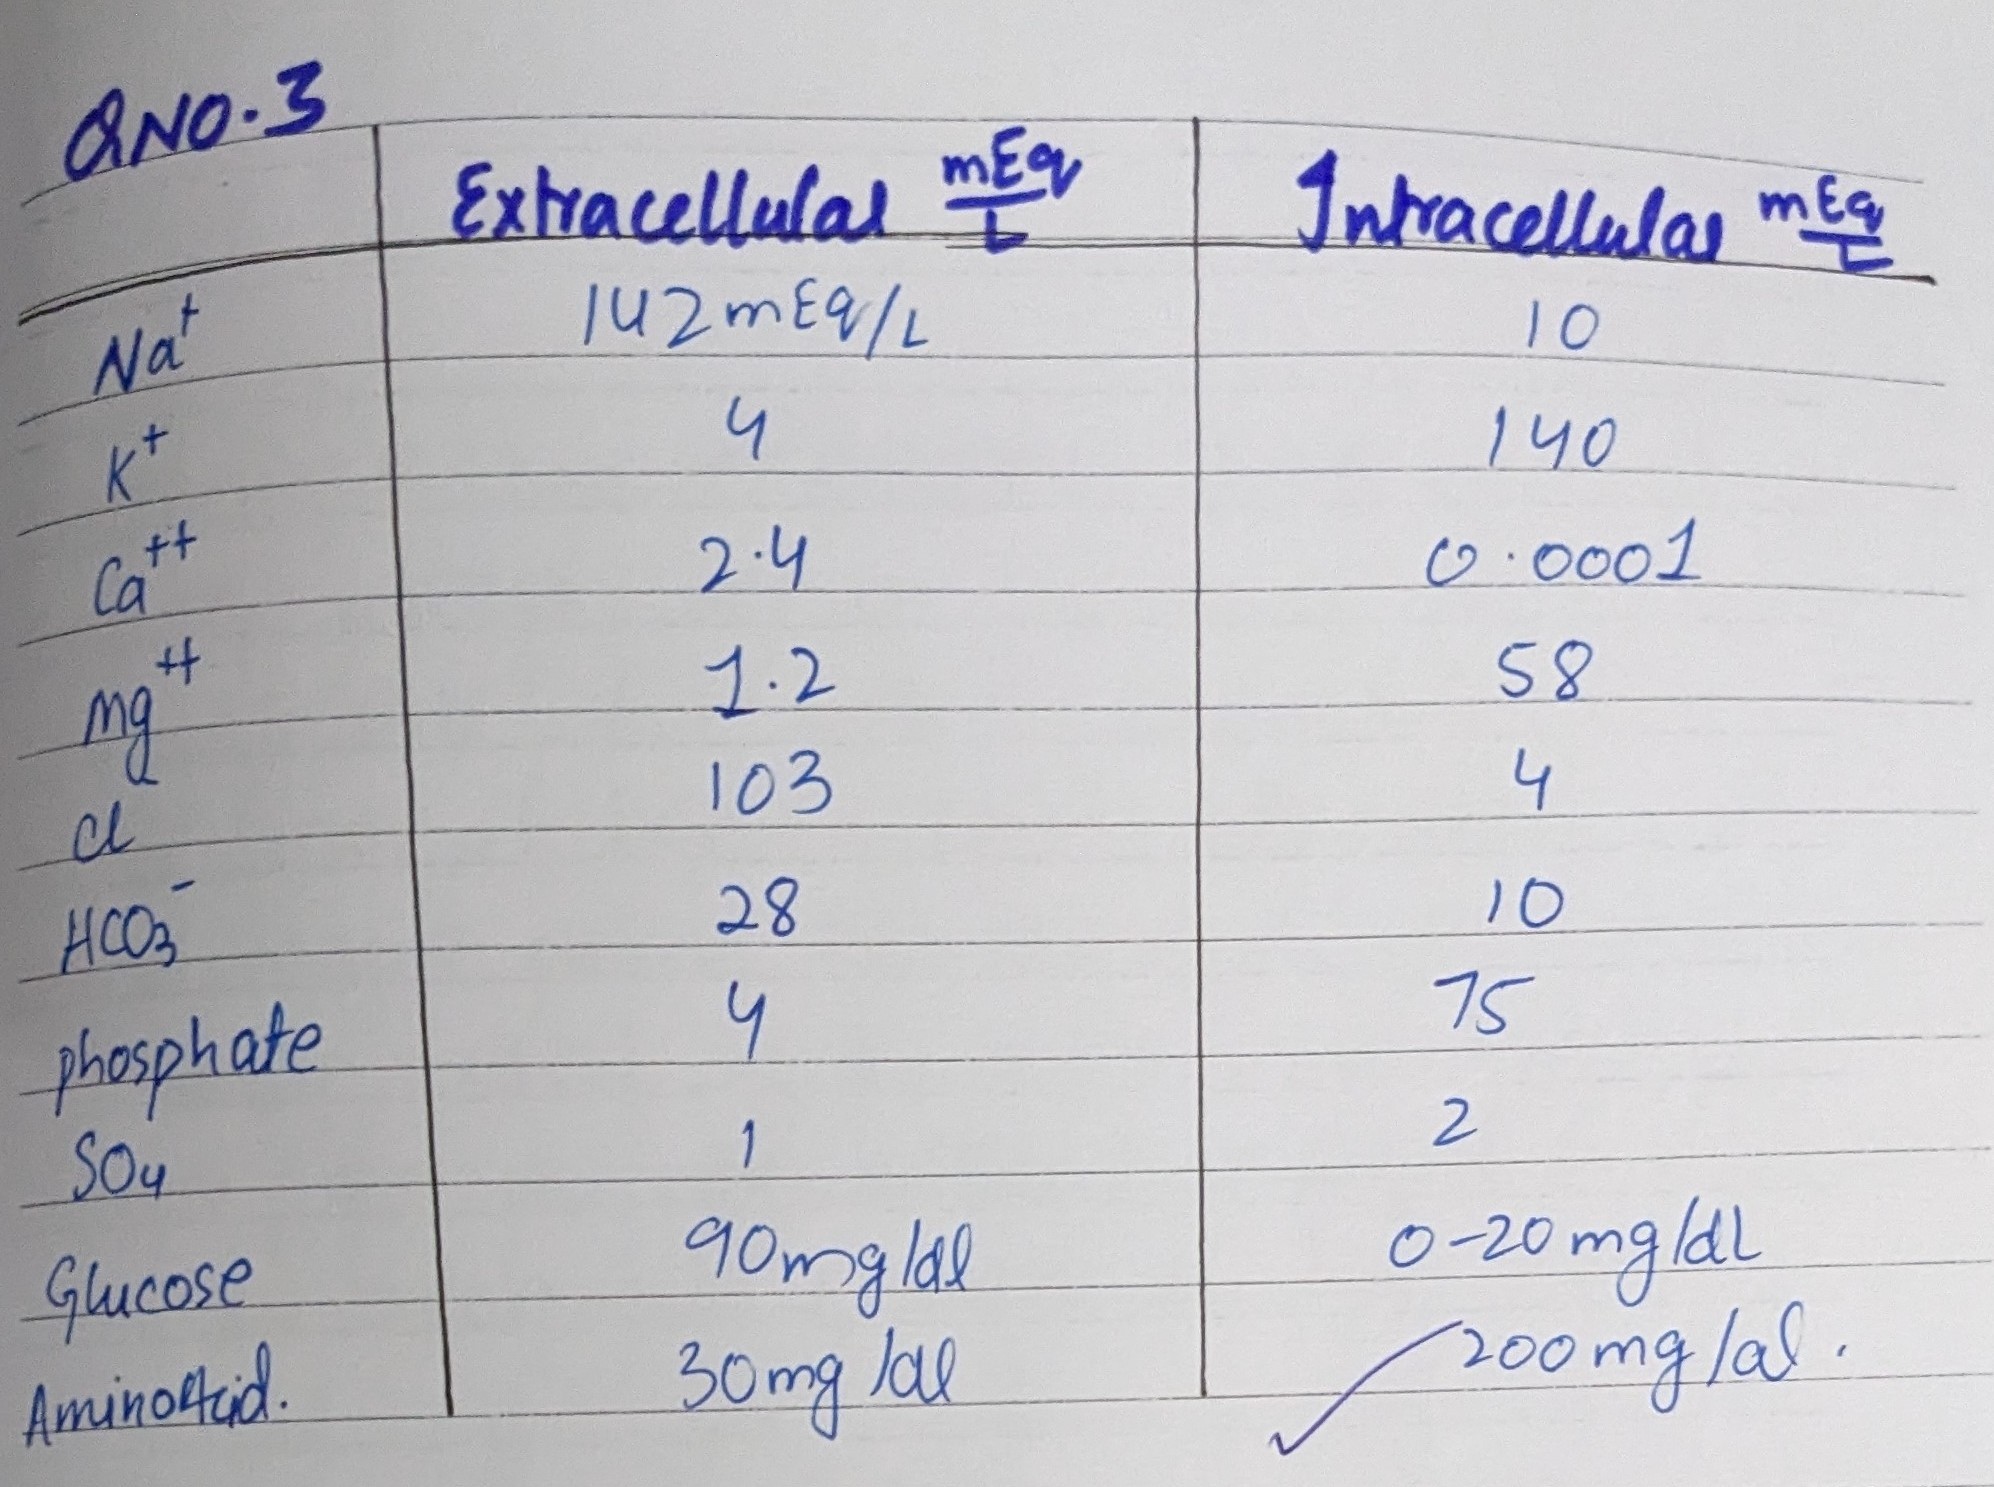 QNO.3
Extracellular mEq/L Intracellular mEq/L
Na⁺ 142mEq/L 10
K⁺ 4 140
Ca⁺⁺ 2.4 0.0001
mg⁺⁺ 1.2 58
Cl 103 4
HCO₃⁻ 28 10
phosphate 4 75
SO₄ 1 2
Glucose 90mg/dl 0-20mg/dL
AminoAcid. 30mg/dl 200mg/dl.